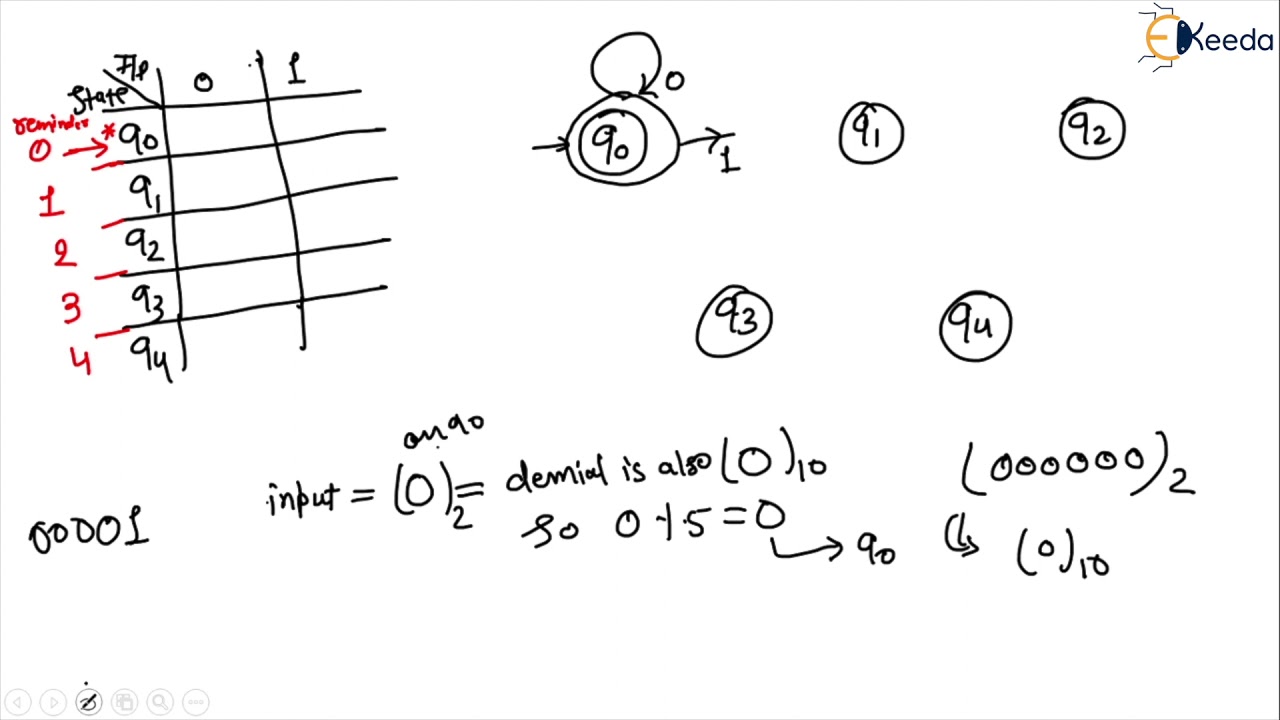 EKeeda
I/p
State
0
1
reminder
0 → * q0
1 q1
2 q2
3 q3
4 q4
0
q0
1
q1
q2
q3
q4
on q0
input = (0)2 = demial is also (0)10
so 0 % 5 = 0
→ q0
(000000)2
↳ (0)10
00001